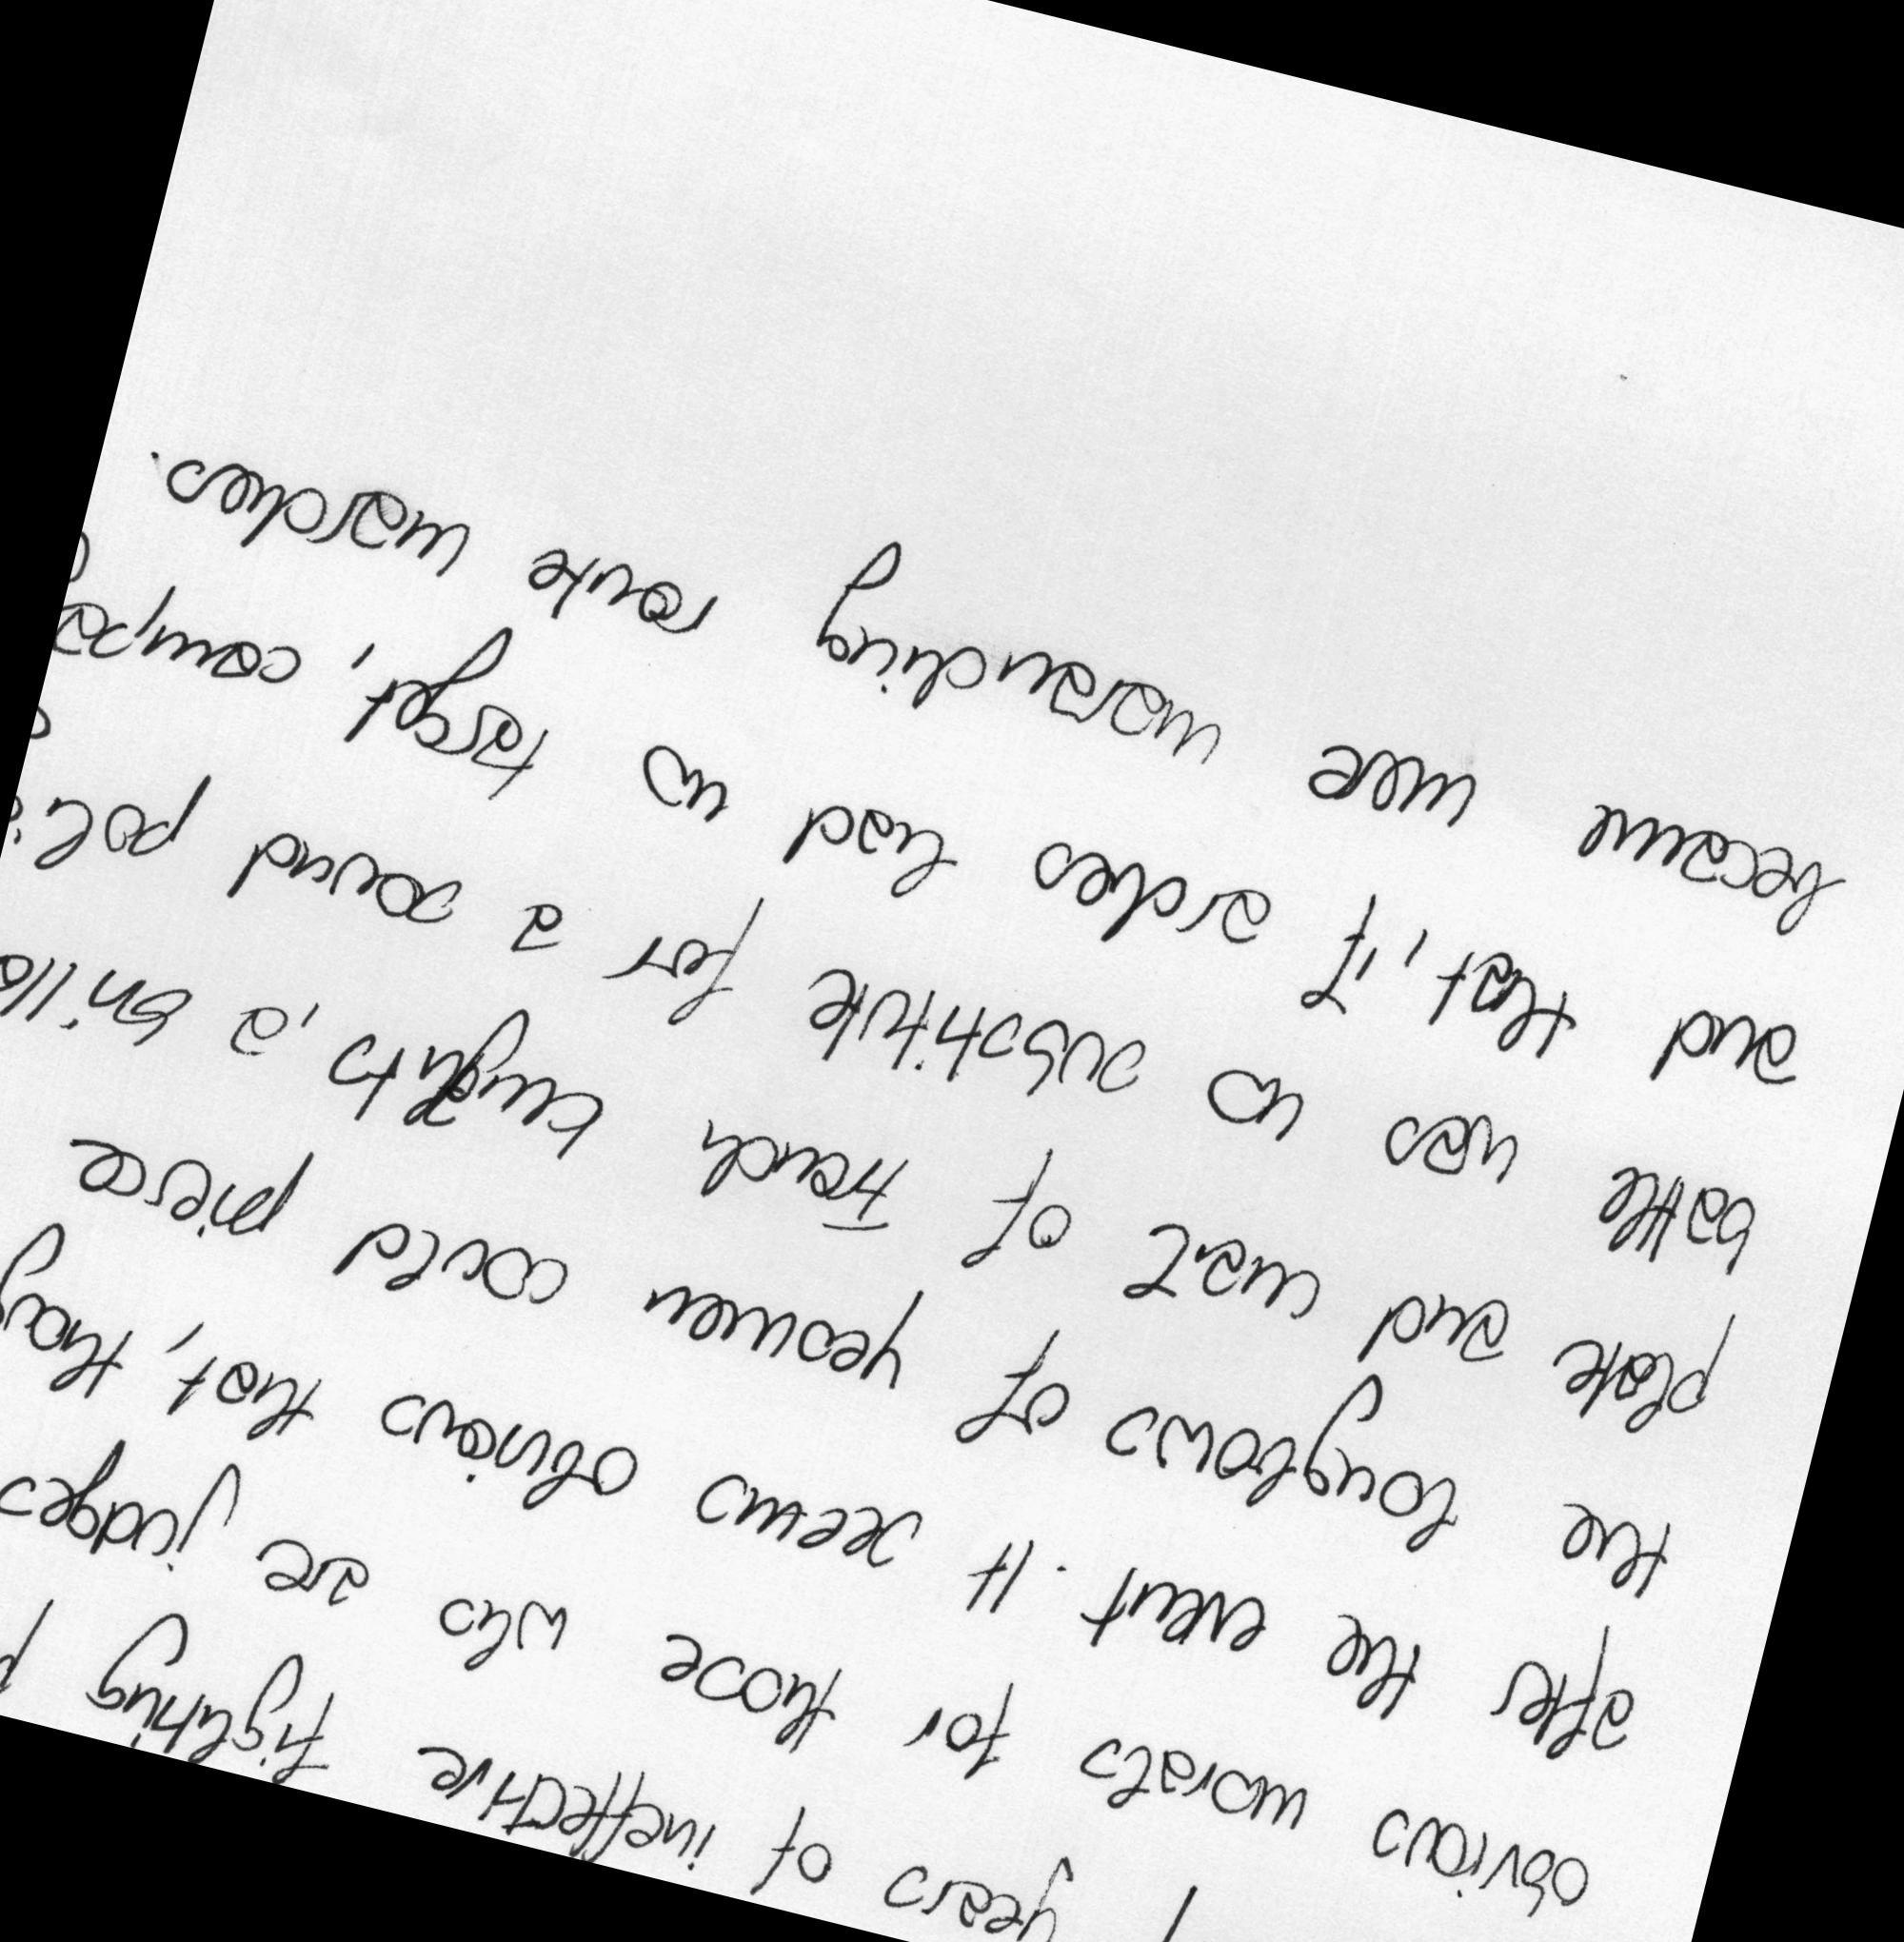 years of ineffective fighting
obvious morals for those who are judges
after the event. It seems obvious that, thoug
the longbows of yeomen could pierce
plate and mail of French knights, a brilla
battle was no substitute for a sound poli
and that, if arches had no target, compa
became mere marauching route marches.